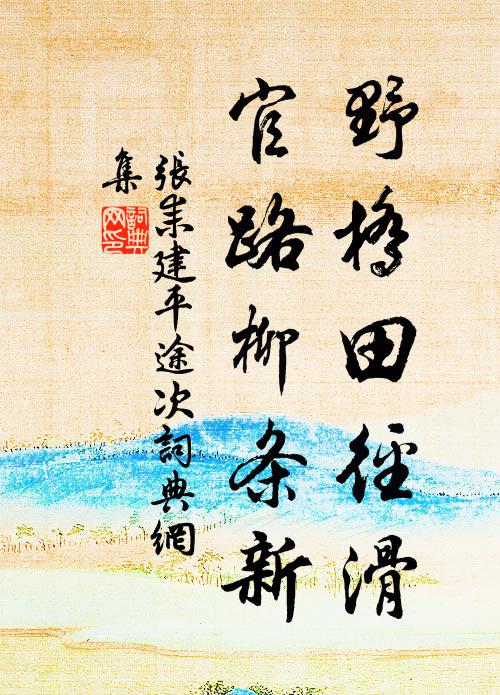 野橋田徑滑
官路柳条新
張耒建平途次詞典網
集
詞典網印